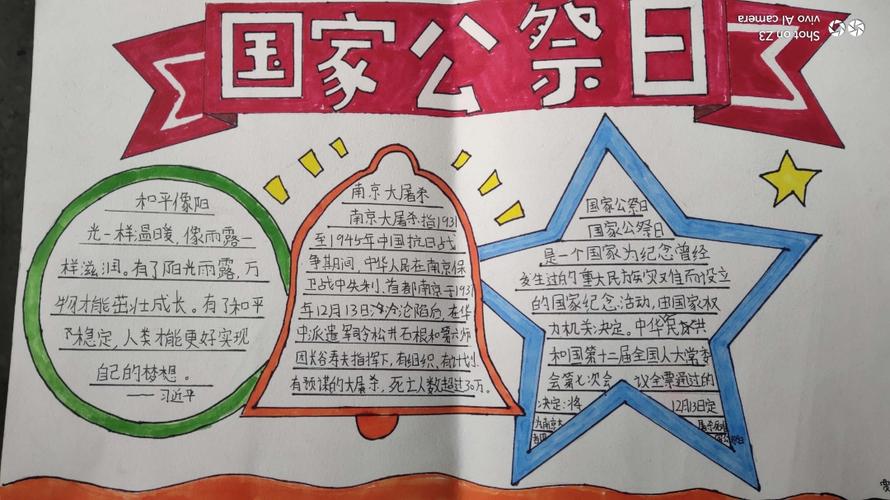 国家公祭日
Shot on Z3
vivo AI camera
和平像阳
光一样温暖,像雨露一
样滋润。有了阳光雨露,万
物才能茁壮成长。有了和平
稳定,人类才能更好实现
自己的梦想。
——习近平
南京大屠杀
南京大屠杀指1931
至1945年中国抗日战
争期间,中华人民在南京保
卫战中失利,首都南京于1931
年12月13日沦陷后,在华
中派遣军司令松井石根和第六师
团长谷寿夫指挥下,有组织、有计划、
有预谋的大屠杀,死亡人数超过30万。
国家公祭日
国家公祭日
是一个国家为纪念曾经
发生过的重大民族灾难而设立
的国家纪念活动,由国家权
力机关决定。中华民共
和国第十二届全国人大常委
会第七次会 议全票通过的
决定:将 12月13日定
为南京大